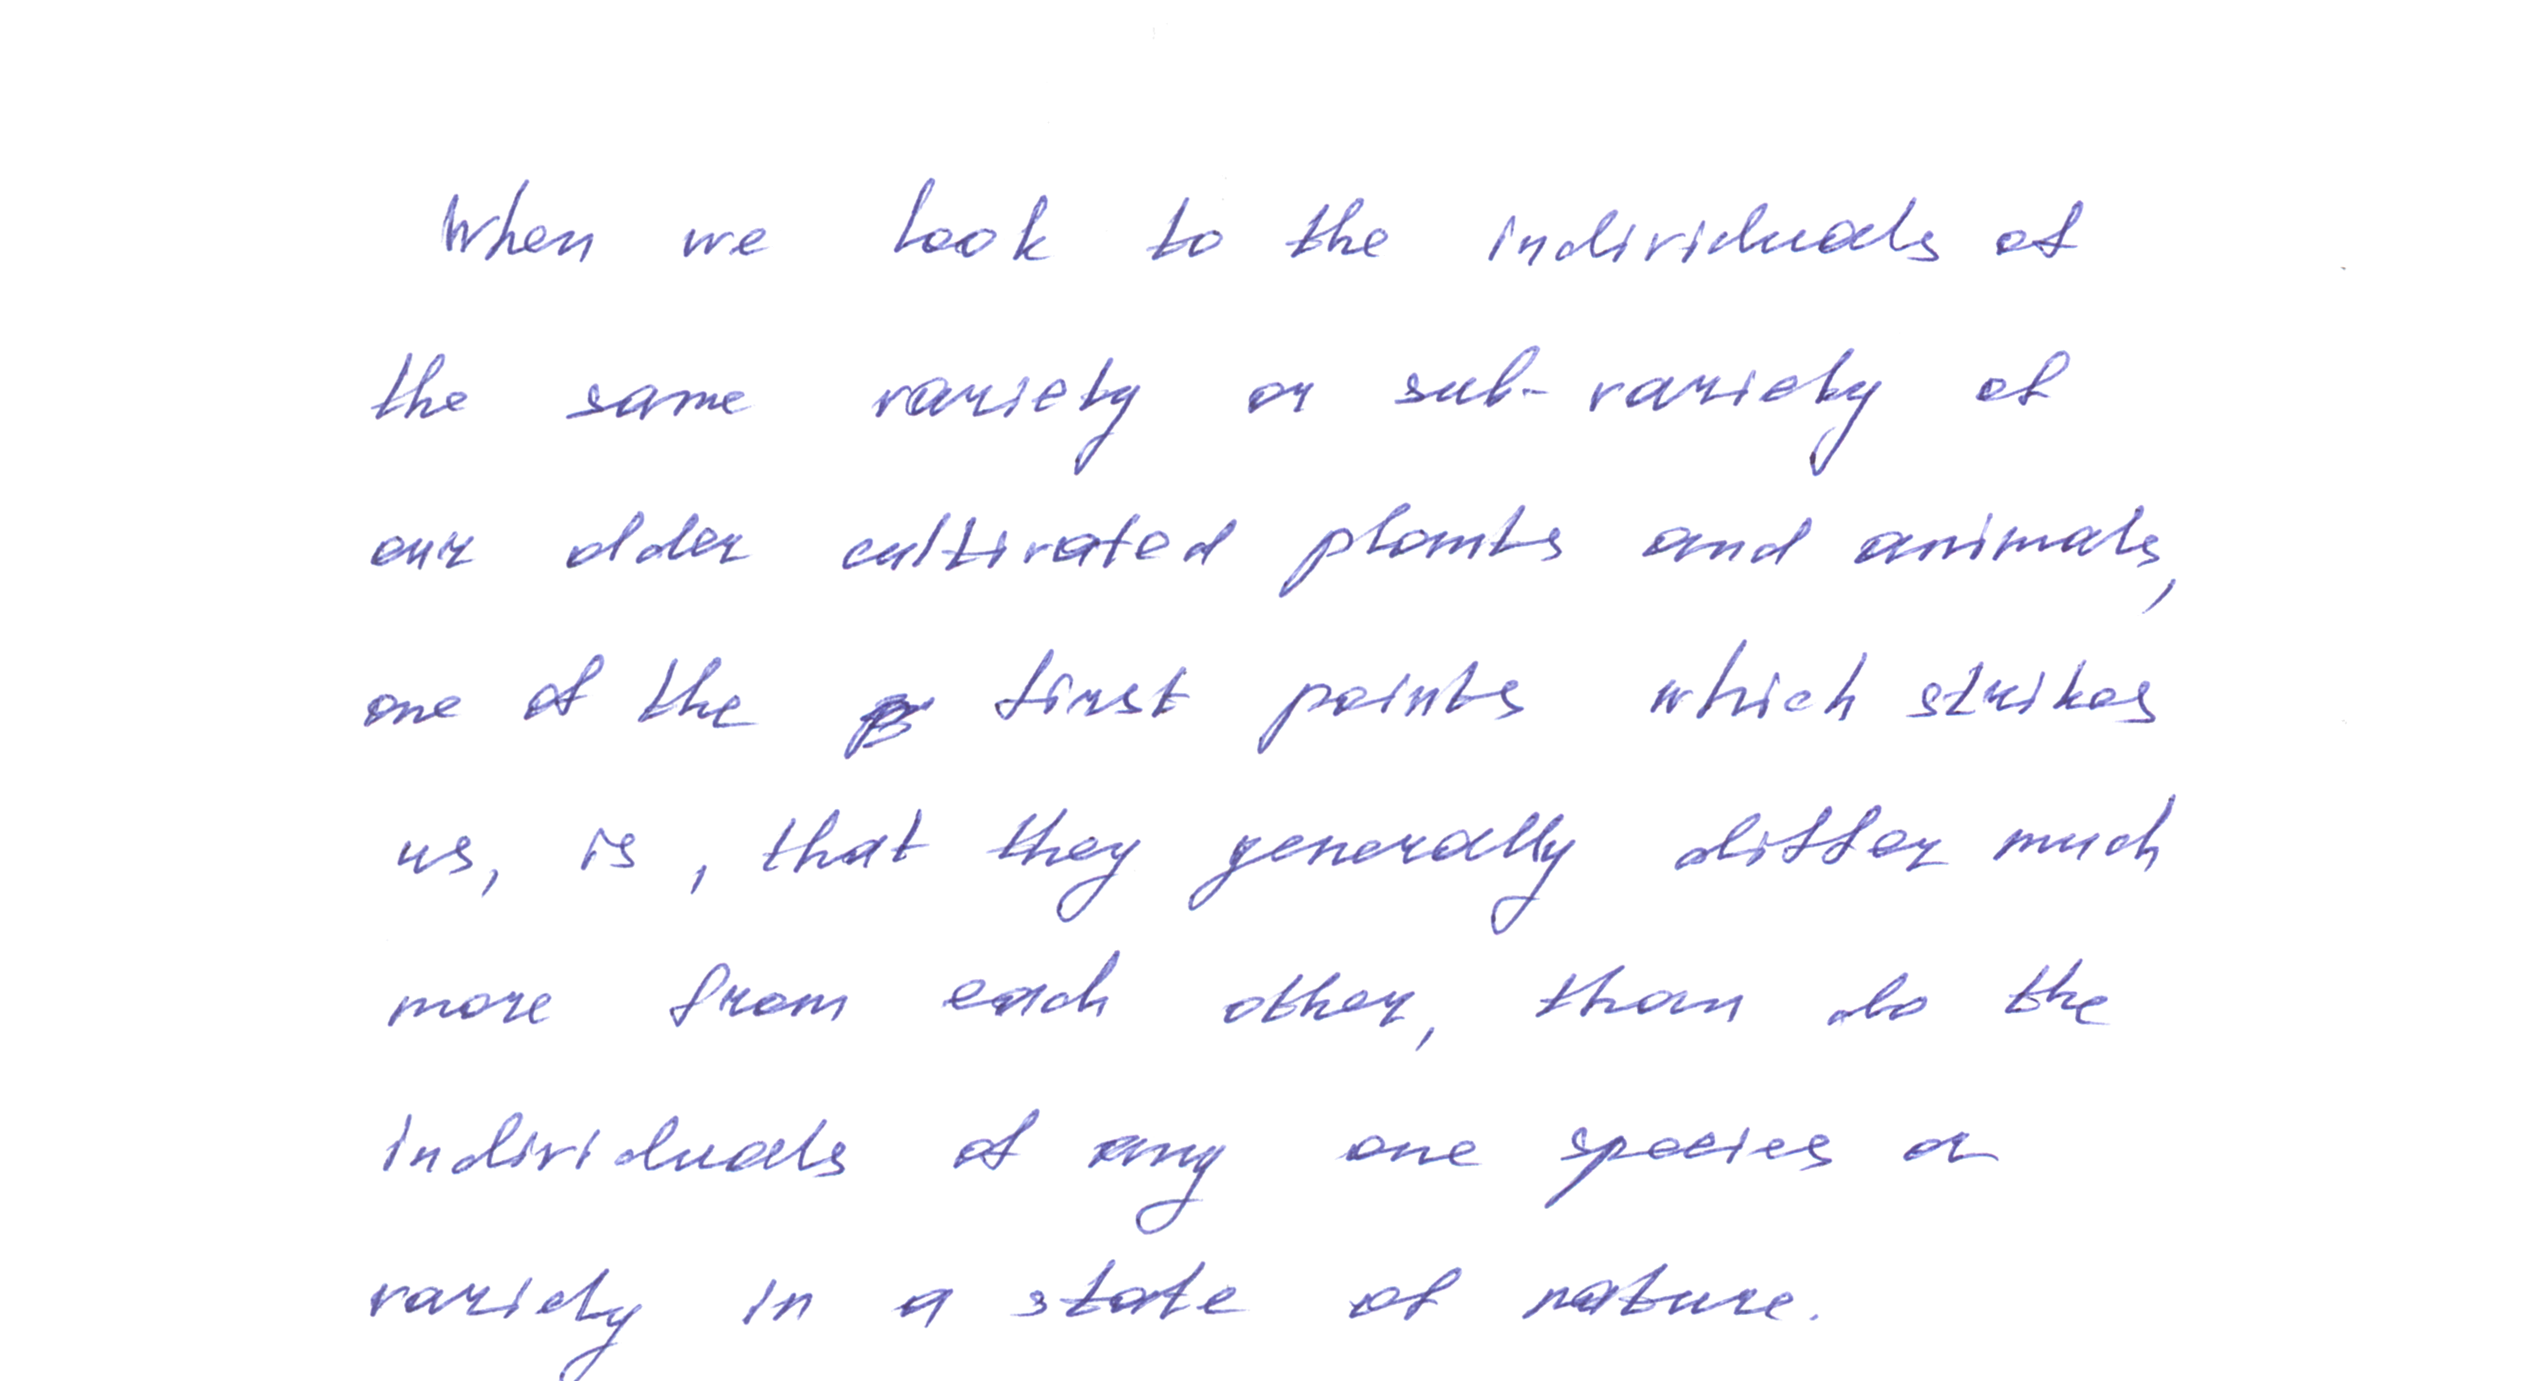 When we look to the individuals of
the same variety or sub-variety of
our older cultivated plants and animals,
one of the first points which strikes
us, is, that they generally differ much
more from each other, than do the
individuals of any one species or
variety in a state of nature.